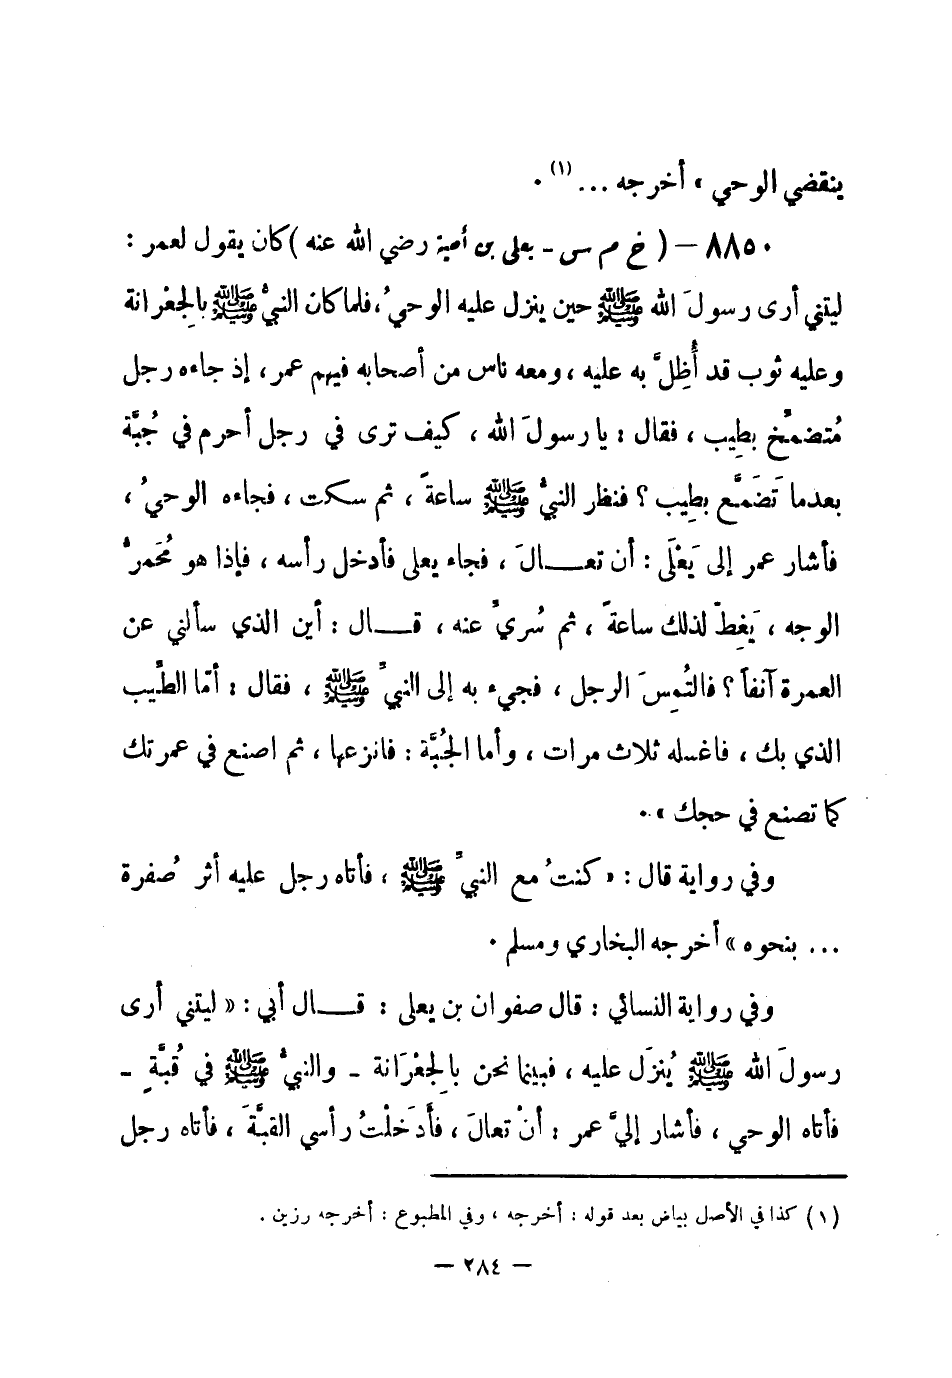 ينقضي الوحي » أخرجه ... (١) .
٨٨٥٠ – ( خ م س - يعلى بن أمية رضي الله عنه ) كان يقول لعمر :
ليتني أرى رسولَ الله ﷺ حين ينزل عليه الوحيُ ، فلما كان النبيُّ ﷺ بالجِعْرانة
وعليه ثوب قد أُظِلَّ به عليه ، ومعه ناس من أصحابه فيهم عمر ، إذ جاءه رجل
مُتضمِّخ بطِيب ، فقال : يا رسولَ الله ، كيف ترى في رجل أحرم في جُبَّة
بعدما تَضَمَّخ بطِيب ؟ فنظر النبيُّ ﷺ ساعةً ، ثم سكت ، فجاءه الوحيُ ،
فأشار عمر إلى يَعْلَى : أن تعـــالَ ، فجاء يعلى فأدخل رأسه ، فإذا هو مُحْمرُّ
الوجه ، يَغِطّ لذلك ساعةً ، ثم سُرِّيَ عنه ، قـــال : أين الذي سألني عن
العمرة آنفاً ؟ فالتُمِسَ الرجل ، فجيء به إلى النبيِّ ﷺ ، فقال : أمّا الطِّيب
الذي بك ، فاغسله ثلاث مرات ، وأما الجُبَّة : فانزعها ، ثم اصنع في عمرتك
كما تصنع في حجك » .
وفي رواية قال : « كنتُ مع النبيِّ ﷺ ، فأتاه رجل عليه أثر صُفرة
... بنحوه » أخرجه البخاري ومسلم .
وفي رواية النسائي : قال صفوان بن يعلى : قـــال أبي : « ليتني أرى
رسولَ الله ﷺ يُنزَل عليه ، فبينما نحن بالجِعْرَانة - والنبيُّ ﷺ في قُبَّةٍ -
فأتاه الوحي ، فأشار إليَّ عمر : أنْ تعالَ ، فأَدخَلْتُ رأسي القبَّةَ ، فأتاه رجل
(١) كذا في الأصل بياض بعد قوله : أخرجه ، وفي المطبوع : أخرجه رزين .
— ٢٨٤ —